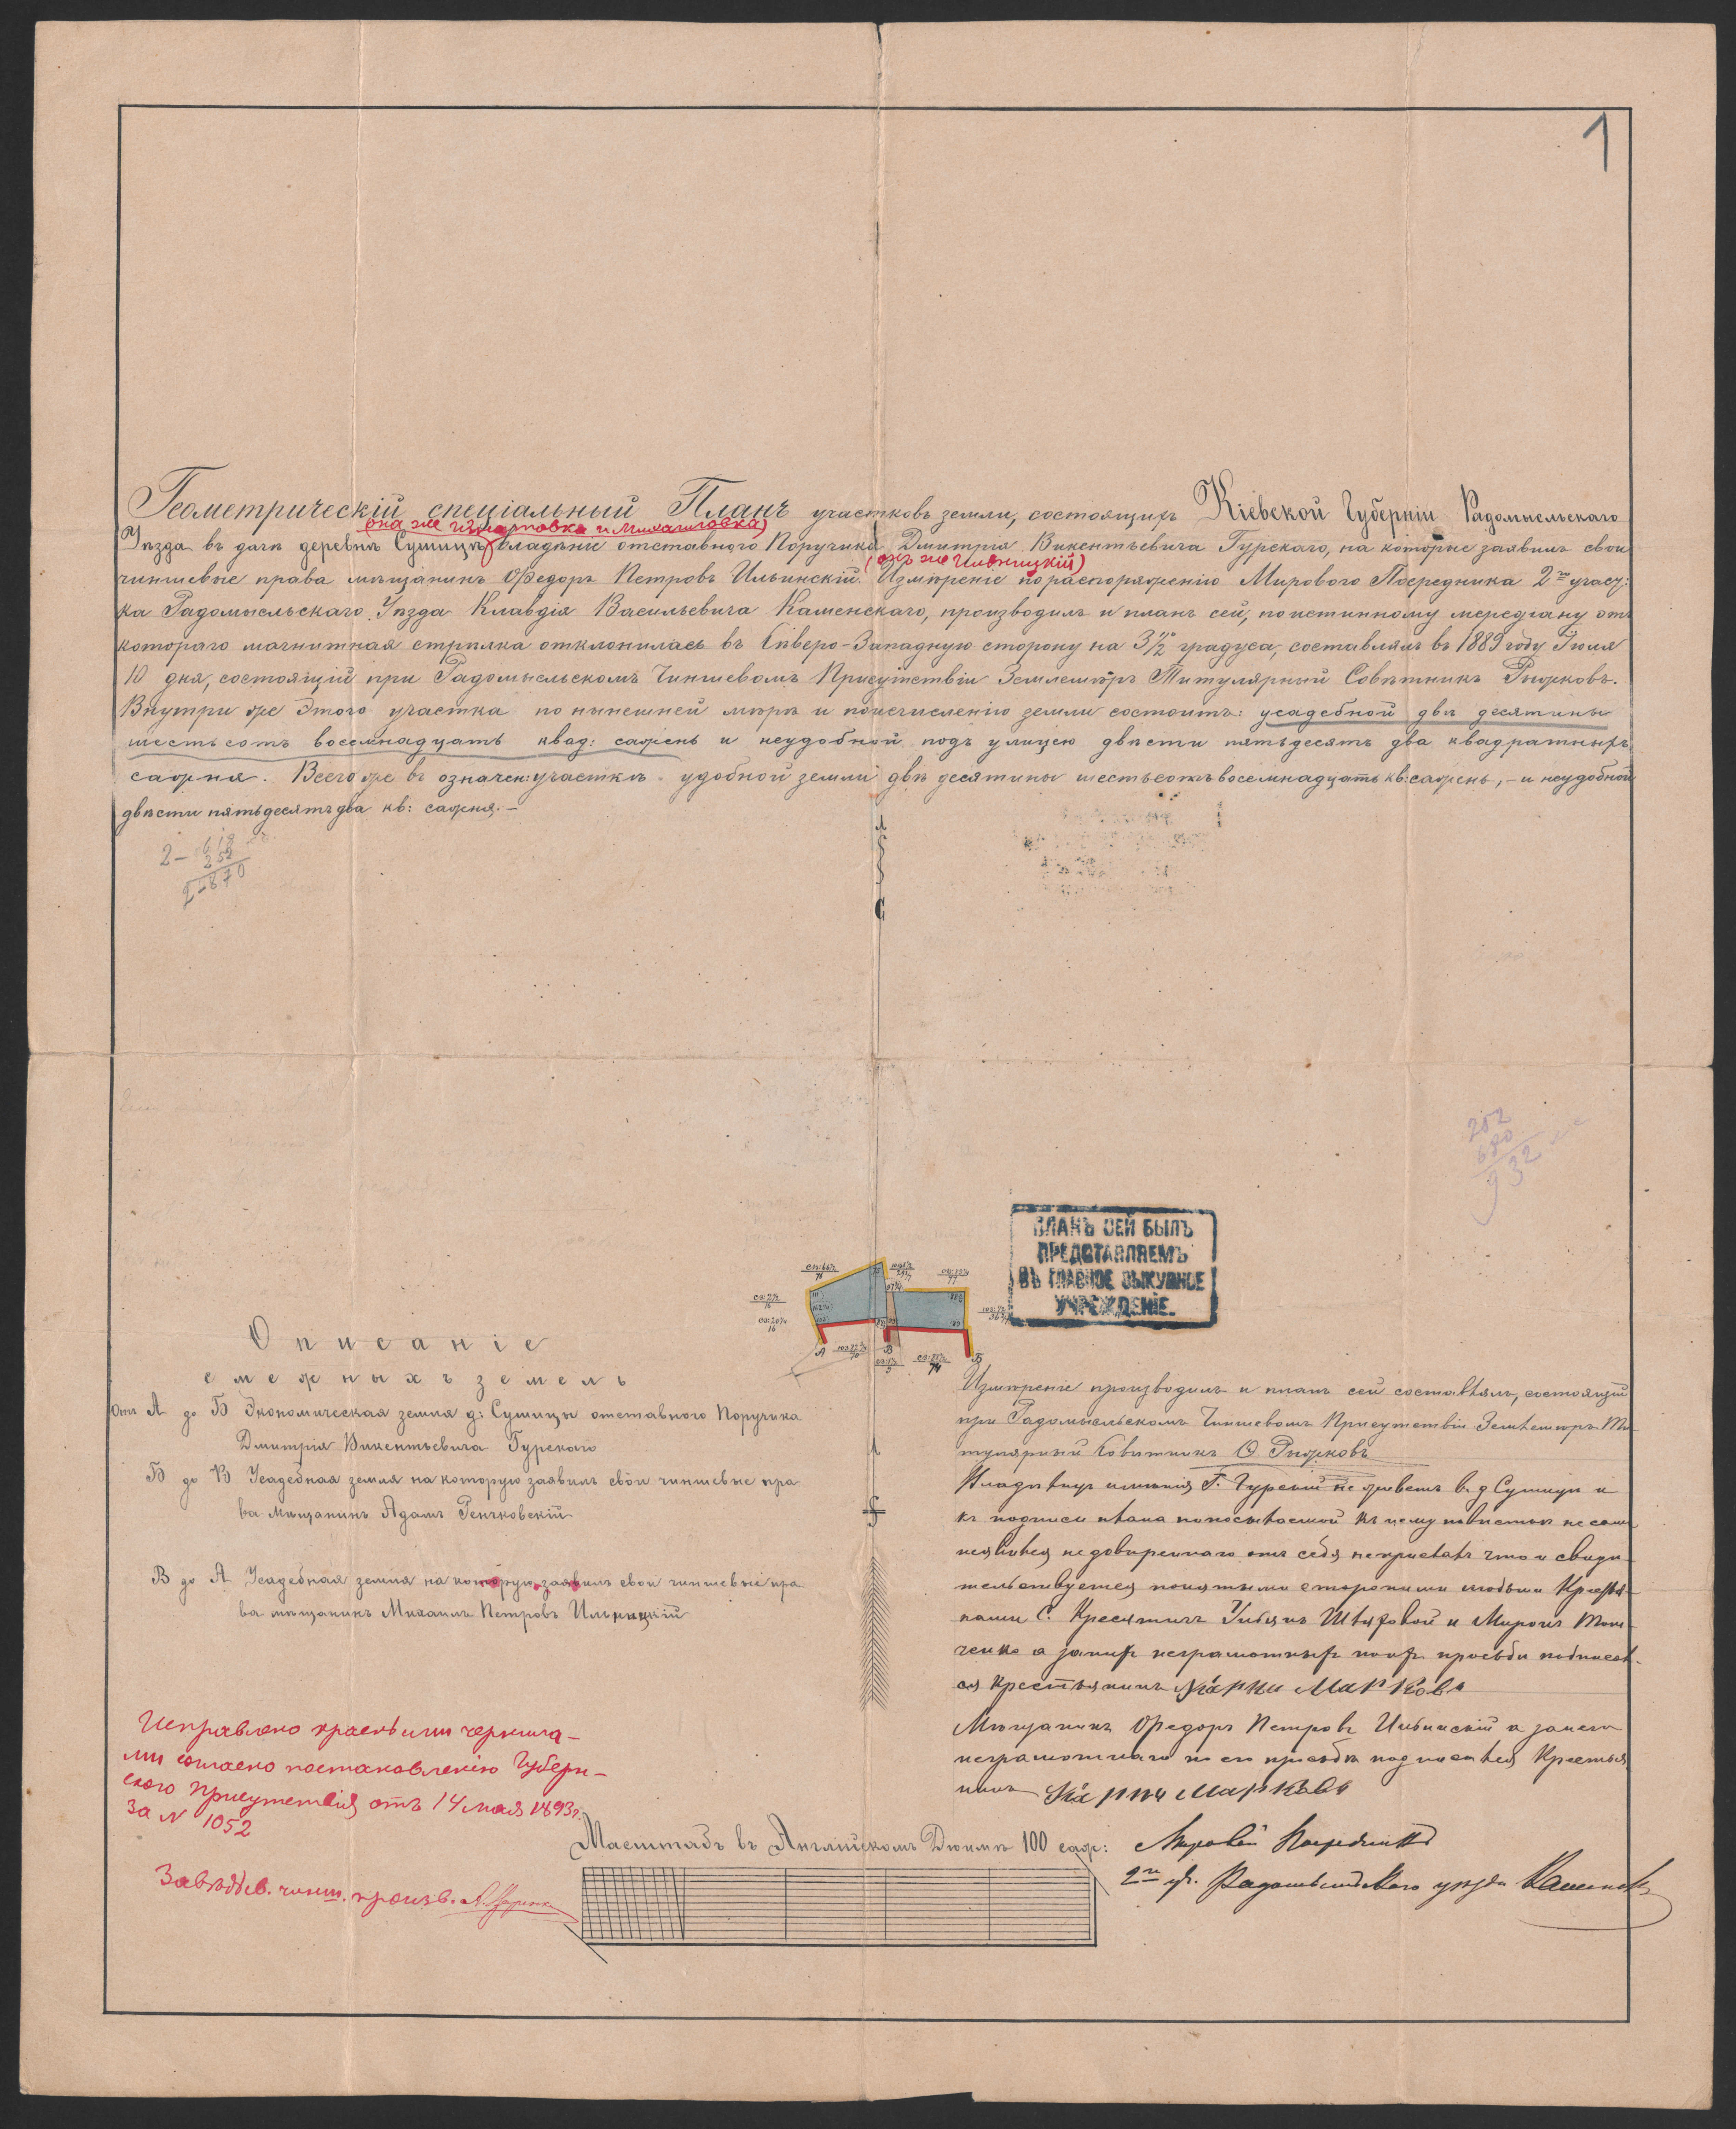 1
Геометрическій спеціальный Планъ участковъ земли, состоящихъ Кіевской Губерніи Радомысльскаго
(она же и Михайловка)
Уѣзда въ дачѣ деревнѣ Сушицы владѣніе отставного Поручика Дмитрія Викентьевича Гурскаго, на которые заявилъ свои
(онъ же Ильницкій)
чиншевые права мѣщанинъ Ѳедоръ Петровъ Ильинскій. Измѣреніе по распоряженію Мирового Посредника 2го участ:
ка Радомысльскаго Уѣзда Клавдія Васильевича Каменскаго, производилъ и планъ сей, по истинному меридіану отъ
котораго магнитная стрѣлка отклонилась въ Сѣверо-Западную сторону на 3 1/2° градуса, составлялъ въ 1889 году Іюля
10 дня, состоящій при Радомысльскомъ Чиншевомъ Присутствіи Землемѣръ Титулярный Совѣтникъ Рыжковъ.
Внутри же этого участка по нынешней мѣрѣ и по исчисленію земли состоитъ: усадебной двѣ десятины
шестьсотъ восемнадцать квад: сажень и неудобной подъ улицею двѣсти пятьдесятъ два квадратныхъ
сажня. Всего же въ означен: участкѣ удобной земли двѣ десятины шестьсотъ восемнадцать кв: сажень, – и неудобной
двѣсти пятьдесятъ два кв: сажня. –
2 – 618
252
2 – 870
С
252
680
932
ПЛАНЪ СЕЙ БЫЛЪ
ПРЕДСТАВЛЯЕМЪ
ВЪ ГЛАВНОЕ ВЫКУПНОЕ
УЧРЕЖДЕНІЕ.
А В Б
Описаніе
смежныхъ земель
Отъ А до Б Экономическая земля д: Сушицы отставного Поручика
Дмитрія Викентьевича Гурскаго
Б до В Усадебная земля на которую заявилъ свои чиншевые пра
ва мѣщанинъ Адамъ Генчковскій
В до А Усадебная земля на которую заявилъ свои чиншевые пра
ва мѣщанинъ Михаилъ Петровъ Ильницкій
Измѣреніе производилъ и планъ сей составлялъ, состоящій
при Радомысльскомъ Чиншевомъ Присутствіи Землемѣръ Ти
тулярный Совѣтникъ Ѳ. Рыжковъ
Владѣлецъ имѣнія Г. Гурскій не живетъ в. д Сушицы и
къ подписи плана по посылаемой къ нему повѣсткѣ не
явился не довѣреннаго отъ себя не прислалъ что и свидѣ
тельствуется понятыми сторонними людьми Крестья
нами С.
а за нихъ неграмотныхъ по ихъ просьбѣ подписал
ся крестьянинъ Марковъ
Мѣщанинъ Ѳедоръ Петровъ Ильинскій а за него
неграмотнаго по его просьбѣ подписался Крестья
нинъ Марковъ
Исправлено красными чернила–
ми согласно постановленію Губерн–
скаго Присутствія отъ 14 мая 1893 г.
за N 1052
Завѣдыв. чинш. произв.
Масштабъ въ Англійскомъ Дюймѣ 100 саж:
Мировой Посредникъ
2го уч. Радомысльскаго уѣзда Каменскій